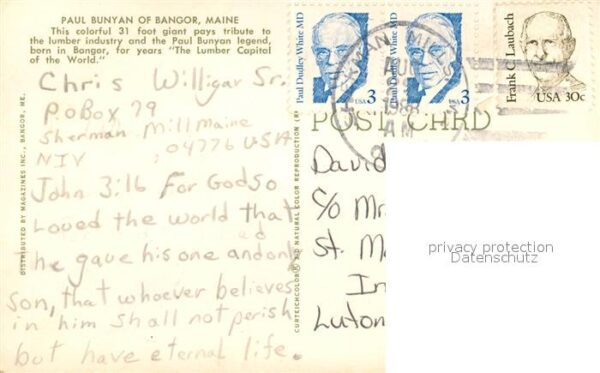 PAUL BUNYAN OF BANGOR, MAINE
This colorful 31 foot giant pays tribute to
the lumber industry and the Paul Bunyan legend,
born in Bangor, for years "The Lumber Capital
of the World."
Chris Willigar Sr.
P.O Box 79
Sherman Mill Maine
04776 USA
NIV
John 3:16 For God so
Loved the world that
he gave his one and only
son, that whoever believes
in him shall not perish
but have eternal life.
DISTRIBUTED BY MAGAZINES INC., BANGOR, ME.
CURTEICHCOLOR® 3-D NATURAL COLOR REPRODUCTION
Paul Dudley White MD
USA 3
Paul Dudley White MD
USA 3
Frank C. Laubach
USA 30c
MILLS
AM
POST CARD
David
c/o Mr
St. M
In
Luton
privacy protection
Datenschutz